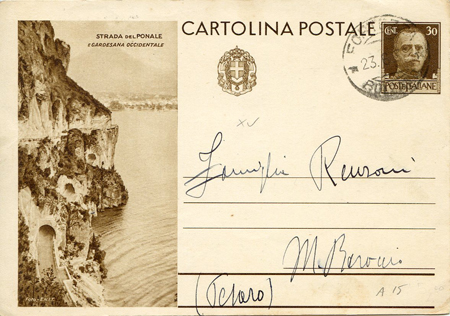 STRADA DEL PONALE
E GARDESANA OCCIDENTALE
CARTOLINA POSTALE
CENT. 30
23.
POSTE ITALIANE
Famiglia Renzoni
M. Baroccio
(Pesaro)
A 15